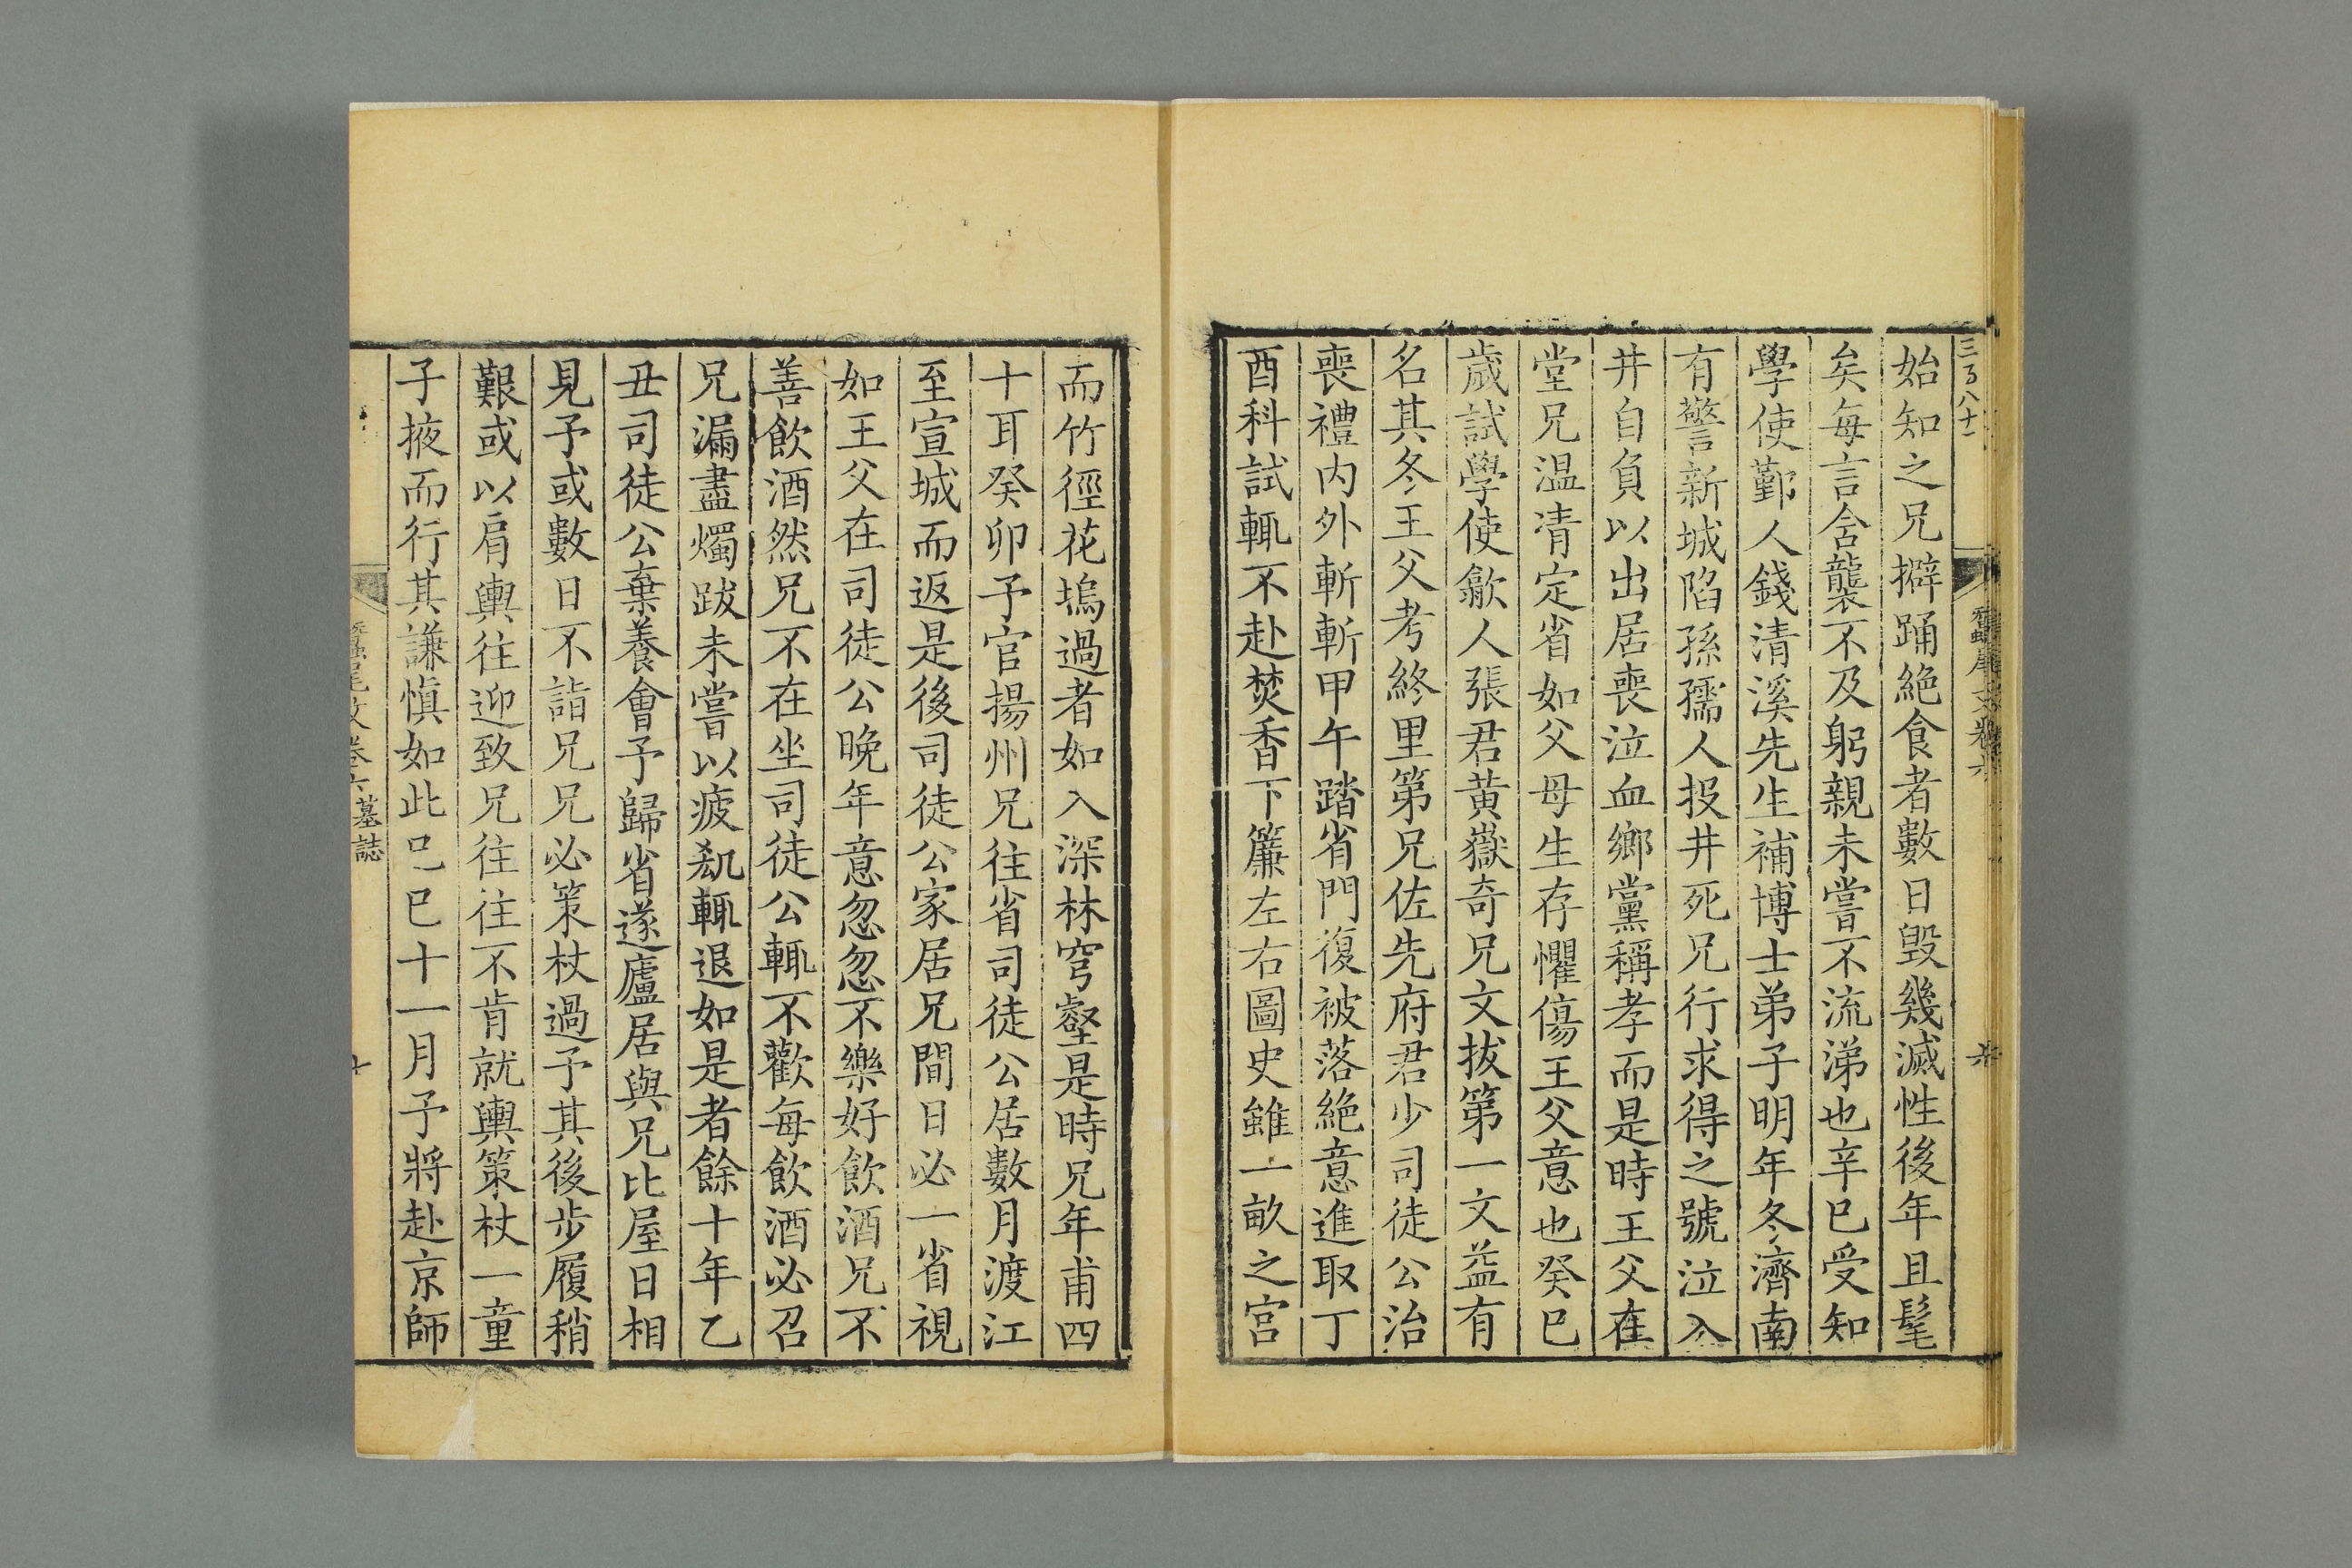 三百八十一
始知之兄擗踊絶食者數日毀幾滅性後年且髦
矣每言含襲不及躬親未嘗不流涕也辛巳受知
學使鄞人錢清溪先生補博士弟子明年冬濟南
有警新城陷孫孺人投井死兄行求得之號泣入
井自負以出居喪泣血鄉黨稱孝而是時王父在
堂兄温凊定省如父母生存懼傷王父意也癸巳
歲試學使歙人張君黄嶽奇兄文拔第一文益有
名其冬王父考終里第兄佐先府君少司徒公治
喪禮内外斬斬甲午踏省門復被落絶意進取丁
酉科試輒不赴焚香下簾左右圖史雖一畝之宫
而竹徑花塢過者如入深林穹壑是時兄年甫四
十耳癸卯予官揚州兄往省司徒公居數月渡江
至宣城而返是後司徒公家居兄間日必一省視
如王父在司徒公晚年意忽忽不樂好飲酒兄不
善飲酒然兄不在坐司徒公輒不歡每飲酒必召
兄漏盡燭跋未嘗以疲剭輒退如是者餘十年乙
丑司徒公棄養會予歸省遂廬居與兄比屋日相
見予或數日不詣兄兄必策杖過予其後步履稍
艱或以肩輿往迎致兄往往不肯就輿策杖一童
子掖而行其謙慎如此己巳十一月予將赴京師
蠶尾文卷六 墓誌